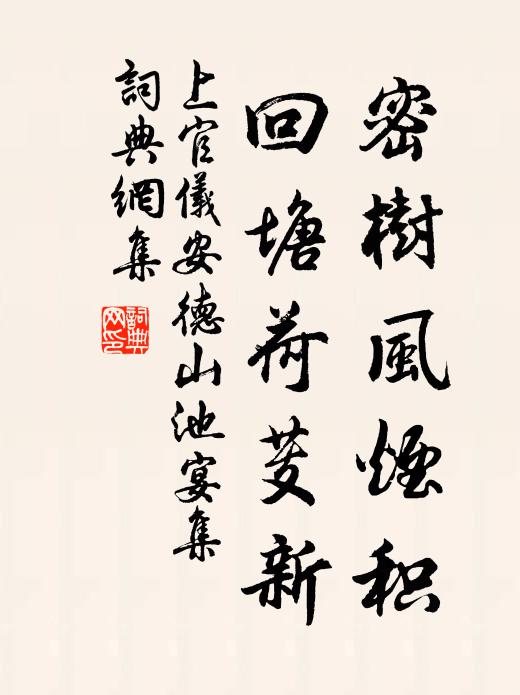 密樹風煙积
回塘荷芰新
上官儀安德山池宴集
詞典網集
詞典网印